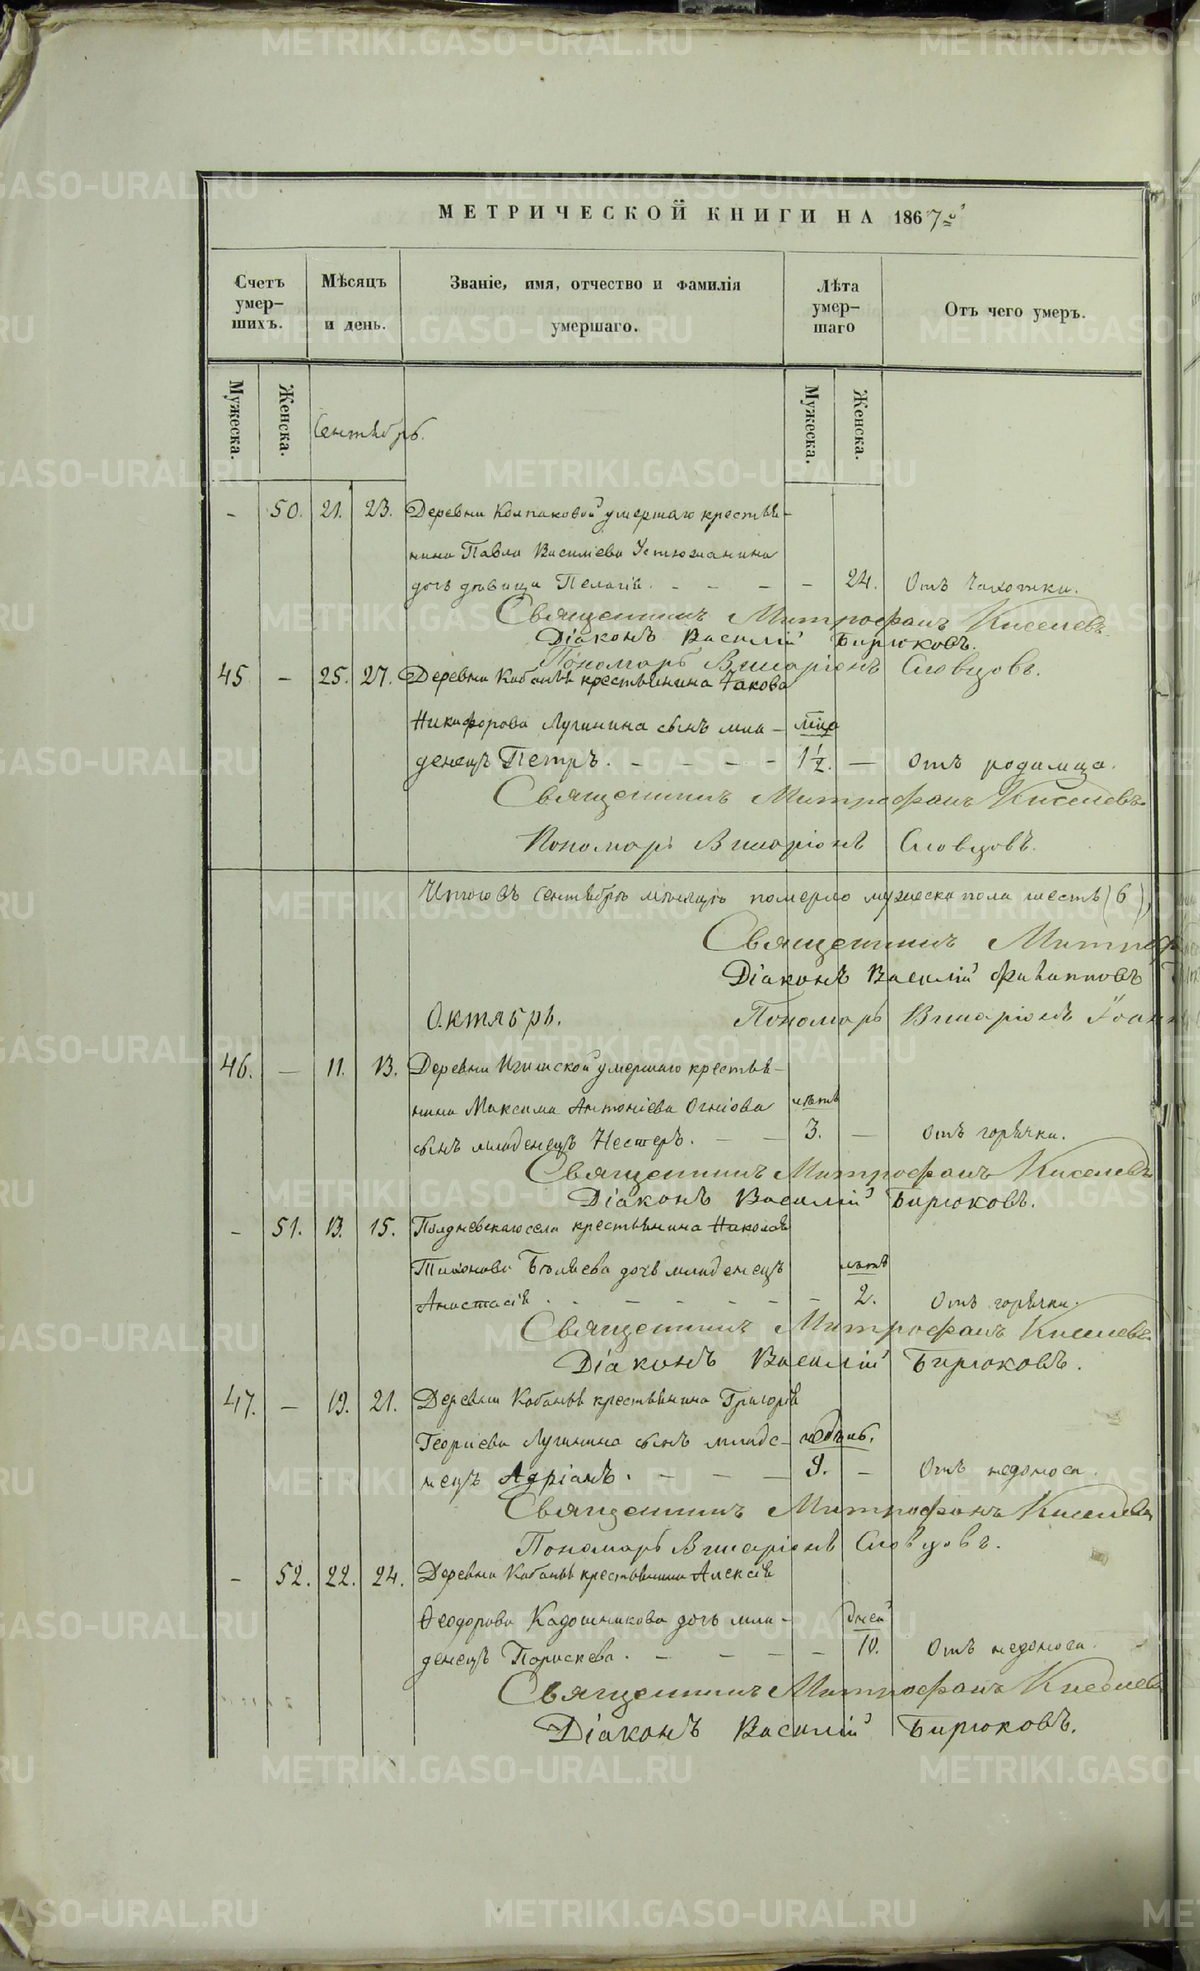 МЕТРИЧЕСКОЙ КНИГИ НА 1867 го
Счетъ умер-шихъ.
Мѣсяцъ и день.
Званіе, имя, отчество и фамилія умершаго.
Лѣта умер-шаго
Отъ чего умеръ.
Мужеска.
Женска.
Сентябрь.
Мужеска.
Женска.
- 50. 21. 23. Деревни Колпаковой умершаго крестья-
нина Павла Василіева Устюжанина
дочь дѣвица Пелагія. - - - - 24. Отъ чахотки.
Священникъ Митрофанъ Киселевъ.
Діаконъ Василій Бирюковъ.
Пономарь Виссаріонъ Словцовъ.
45 - 25. 27. Деревни Кабаньѣ крестьянина Іакова
Никифорова Лугинина сынъ мла-
денецъ Петръ. - - - - 1½. - Отъ родимца.
Священникъ Митрофанъ Киселевъ.
Пономарь Виссаріонъ Словцовъ.
Итого въ Сентябрѣ мѣсяцѣ померло мужеска пола шесть (6),
Священникъ Митроф
Діаконъ Василій Филипповъ
Октябрь.
Пономарь Виссаріонъ Іоан
46. - 11. 13. Деревни Игишской умершаго крестья-
нина Максима Антоніева Огніова лѣтъ
сынъ младенецъ Нестеръ. - - 3. - Отъ горячки.
Священникъ Митрофанъ Киселевъ
Діаконъ Василій Бирюковъ.
- 51. 13. 15. Полдневскаго села крестьянина Николая
Тихонова Бѣляева дочь младенецъ лѣтъ
Анастасія . . - - - - - 2. Отъ горячки.
Священникъ Митрофанъ Киселевъ
Діаконъ Василій Бирюковъ.
47. - 19. 21. Деревни Кабаньѣ крестьянина Григорія
Георгіева Лугинина сынъ младе- недѣль.
нецъ Адріанъ. - - - 9. - Отъ недоноса.
Священникъ Митрофанъ Киселевъ
Пономарь Виссаріонъ Словцовъ.
- 52. 22. 24. Деревни Кабаньѣ крестьянина Алексія
Ѳеодорова Кадошникова дочь мла- дней
денецъ Параскева. - - - - 10. Отъ недоноса.
Священникъ Митрофанъ Киселевъ
Діаконъ Василій Бирюковъ.
METRIKI.GASO-URAL.RU